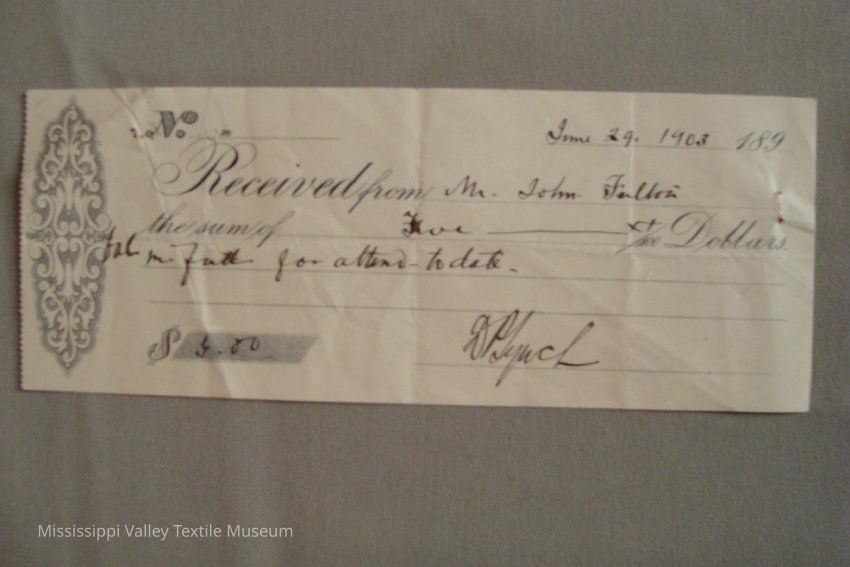 No.
June 29. 1903 189
Received from Mr. John Fulton
the sum of Five Dollars.
in full for attend- to date.
$ 5.00
Mississippi Valley Textile Museum